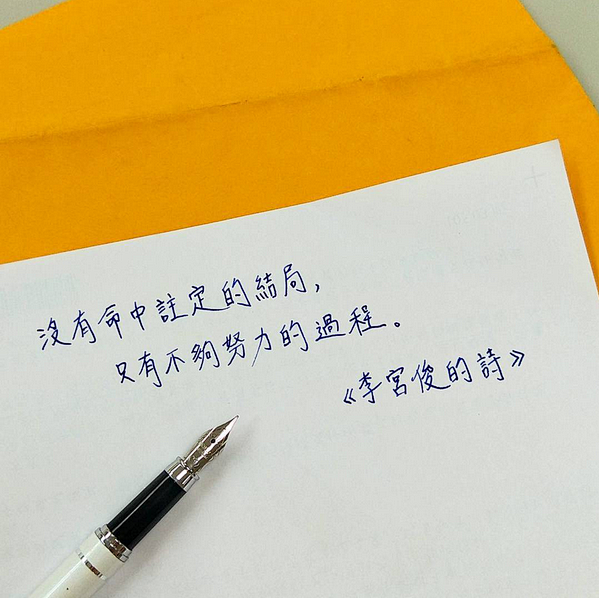 沒有命中註定的結局，
只有不夠努力的過程。
《李宮俊的詩》